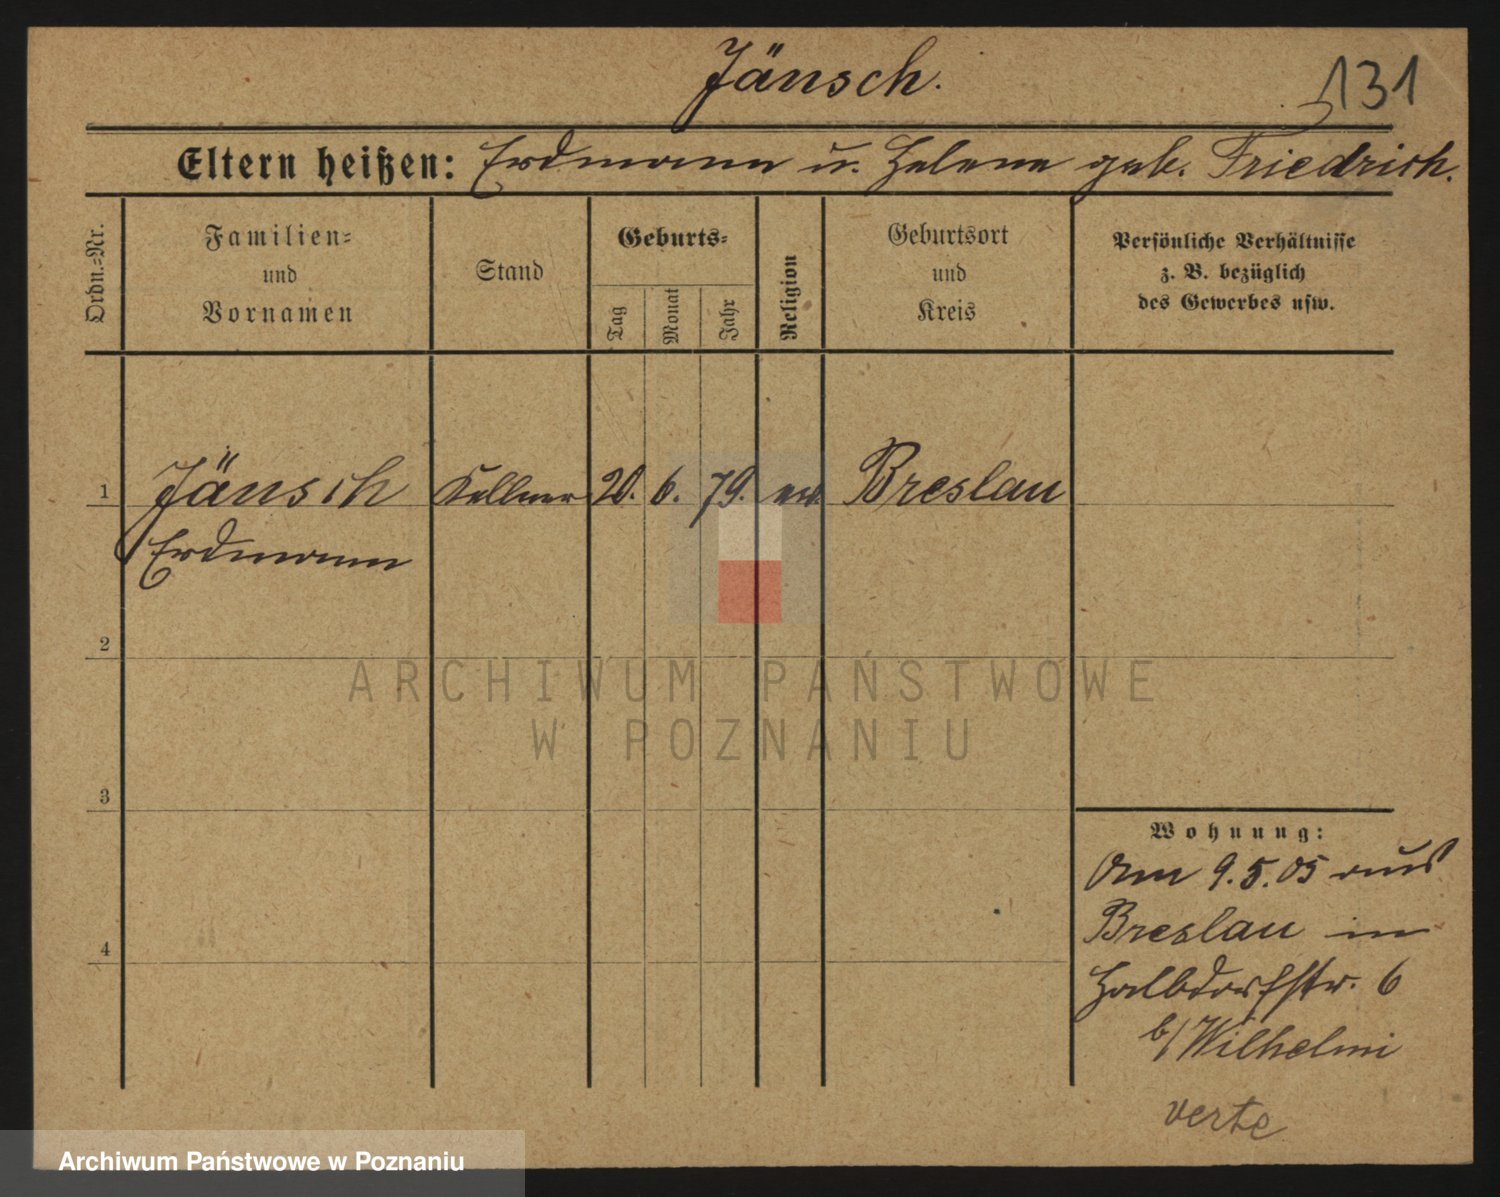 Jänsch.
131
Eltern heißen: Erdmann u. Helene geb. Friedrich.
Ordn.-Nr.
Familien-
und
Vornamen
Stand
Geburts-
Tag
Monat
Jahr
Religion
Geburtsort
und
Kreis
Persönliche Verhältnisse
z. B. bezüglich
des Gewerbes usw.
1 Jänsch Kellner 20. 6. 79. ev. Breslau
Erdmann
2
3
4
Wohnung:
Am 9.5.05 aus
Breslau in
Halbdorfstr. 6
b/ Wilhelmi
verte
ARCHIWUM PAŃSTWOWE
W POZNANIU
Archiwum Państwowe w Poznaniu